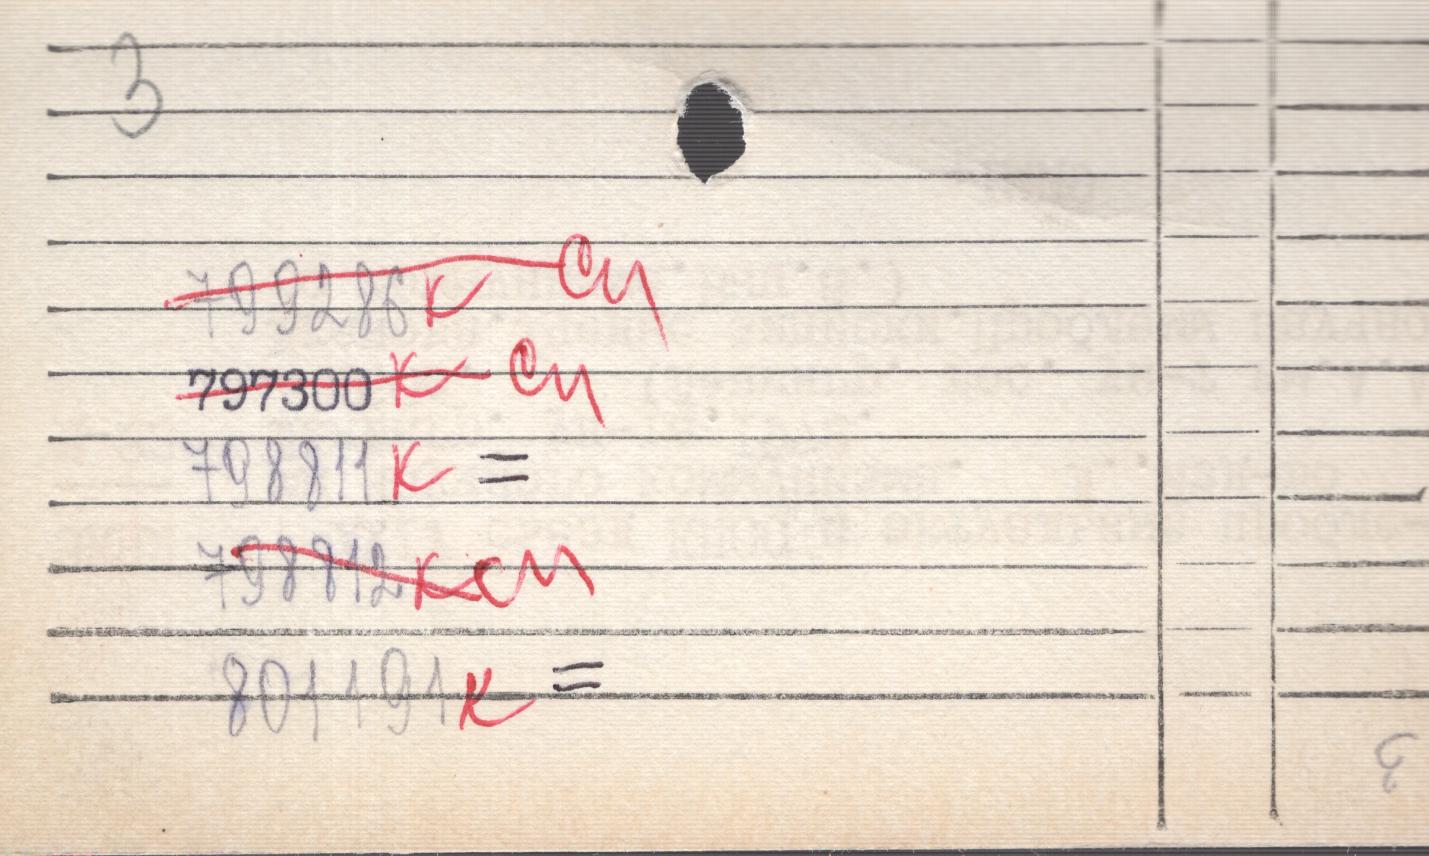 3
799286 К СИ
797300 К СИ
798811 К =
798812 К СИ
801191 К =
3